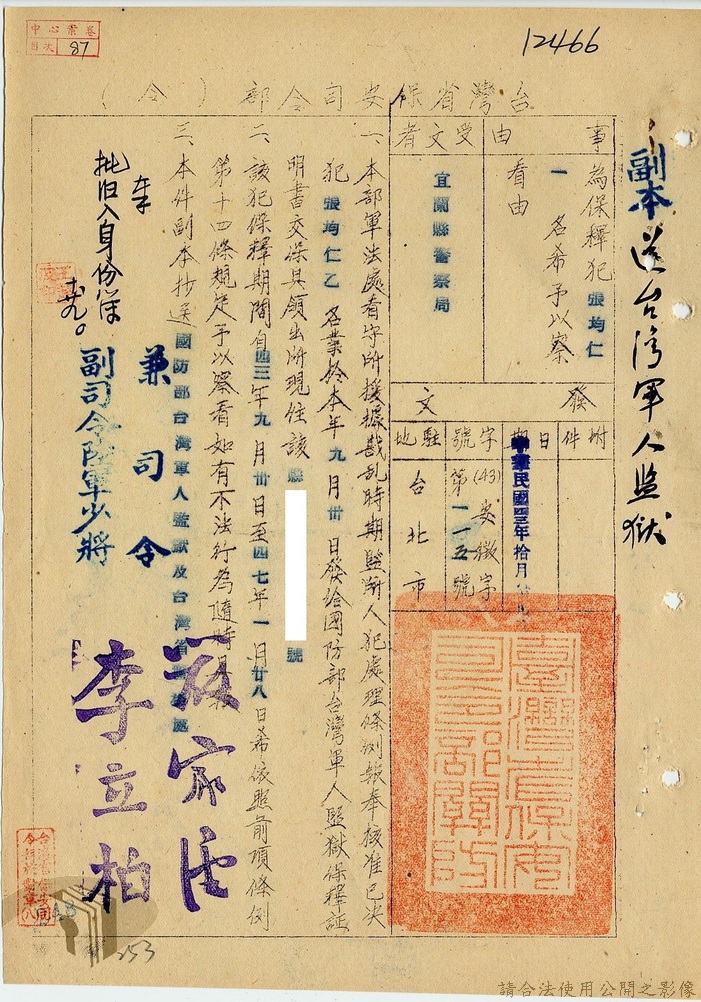 中心案卷
目次 87
12466
副本送台灣軍人監獄
台灣省保安司令部（令）
事由
為保釋犯張均仁
一名希予以察
看由
受文者
宜蘭縣警察局
發文
附件
日期
中華民國四三年拾月
字號
(43)安徵字
第一一五號
駐地
台北市
一、本部軍法處看守所援據戡乱時期監所人犯處理條例報奉核准已决
犯張均仁乙名業於本年九月卅日發給國防部台灣軍人監獄保釋証
明書交保具領出所現住該縣
號
二、該犯保釋期間自四三年九月卅日至四七年一月廿八日希依照前項條例
第十四條規定予以察看如有不法行為隨時
三、本件副本抄送國防部台灣軍人監獄及台灣省
兼司令
副司令陸軍少將
李立柏
批归入身份簿
臺灣省保安司令部關防
253
請合法使用公開之影像